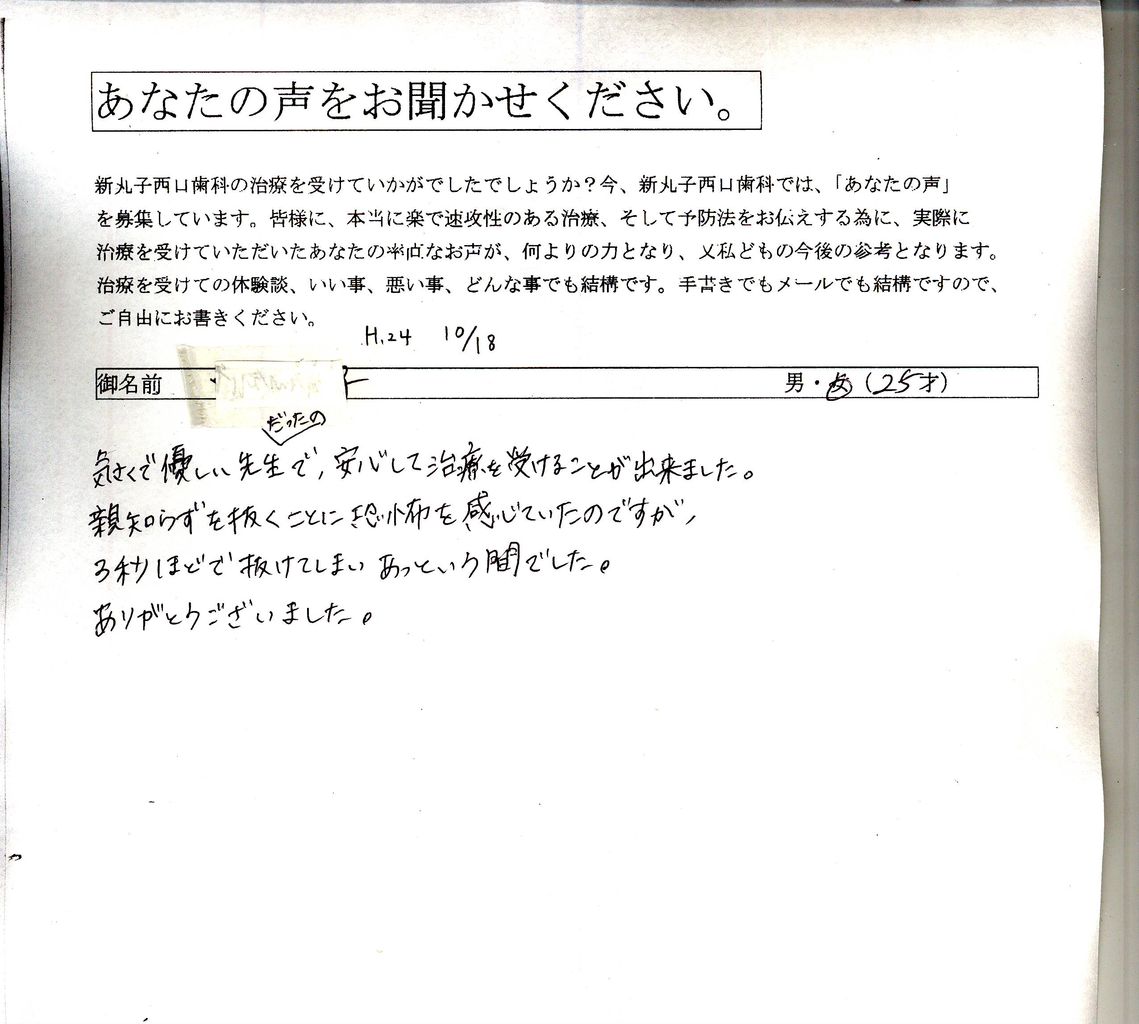 あなたの声をお聞かせください。
新丸子西口歯科の治療を受けていかがでしたでしょうか?今、新丸子西口歯科では、「あなたの声」
を募集しています。皆様に、本当に楽で速攻性のある治療、そして予防法をお伝えする為に、実際に
治療を受けていただいたあなたの率直なお声が、何よりの力となり、又私どもの今後の参考となります。
治療を受けての体験談、いい事、悪い事、どんな事でも結構です。手書きでもメールでも結構ですので、
ご自由にお書きください。
H.24 10/18
御名前 男・女(25才)
だったの
気さくで優しい先生で、安心して治療を受けることが出来ました。
親知らずを抜くことに恐怖を感じていたのですが、
3秒ほどで抜けてしまいあっという間でした。
ありがとうございました。